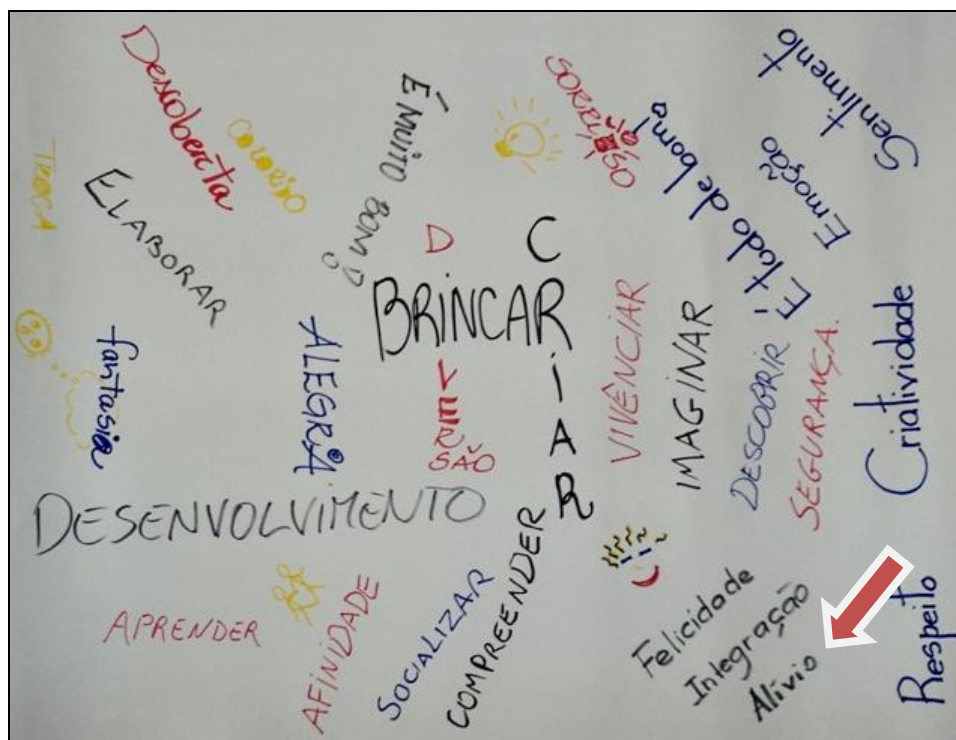 Descoberta
COLORIDO
TROCA
ELABORAR
É MUITO BOM!
SORRISO
É tudo de bom!
Sentimento
Emoção
BRINCAR
CRIAR
DIVERSÃO
fantasia
ALEGRIA
VIVÊNCIAR
IMAGINAR
DESCOBRIR
SEGURANÇA
Criatividade
DESENVOLVIMENTO
APRENDER
AFINIDADE
SOCIALIZAR
COMPREENDER
Felicidade
Integração
Alívio
Respeito